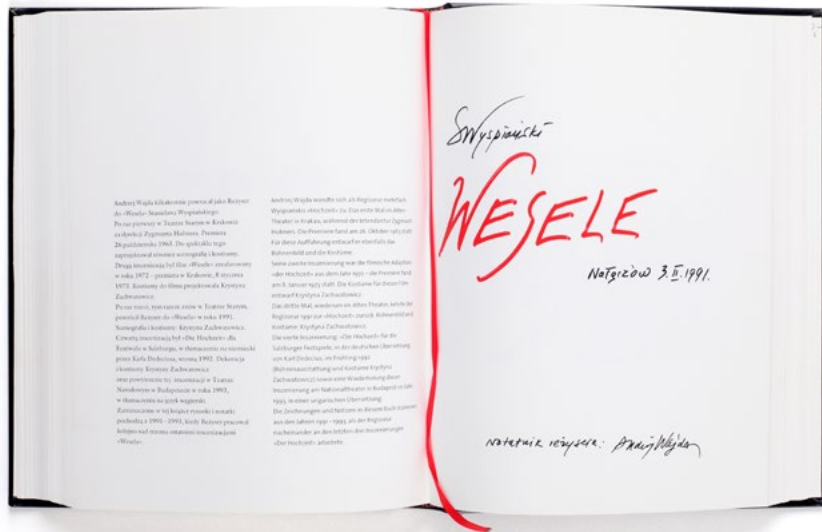 Andrzej Wajda kilkakrotnie powracał jako Reżyser
do «Wesela» Stanisława Wyspiańskiego.
Po raz pierwszy w Teatrze Starym w Krakowie
za dyrekcji Zygmunta Hübnera. Premiera
26 października 1963. Do spektaklu tego
zaprojektował również scenografię i kostiumy.
Drugą inscenizacją był film «Wesele» zrealizowany
w roku 1972 – premiera w Krakowie, 8 stycznia
1973. Kostiumy do filmu projektowała Krystyna
Zachwatowicz.
Po raz trzeci, tym razem znów w Teatrze Starym,
powrócił Reżyser do «Wesela» w roku 1991.
Scenografia i kostiumy: Krystyna Zachwatowicz.
Czwartą inscenizacją był «Die Hochzeit» dla
Festiwalu w Salzburgu, w tłumaczeniu na niemiecki
przez Karla Dedeciusa, wiosną 1992. Dekoracja
i kostiumy Krystyny Zachwatowicz
oraz powtórzenie tej inscenizacji w Teatrze
Narodowym w Budapeszcie w roku 1993,
w tłumaczeniu na język węgierski.
Zamieszczone w tej książce rysunki i notatki
pochodzą z 1991–1993, kiedy Reżyser pracował
kolejno nad trzema ostatnimi inscenizacjami
«Wesela».
Andrzej Wajda wandte sich als Regisseur mehrfach
Wyspiańskis «Hochzeit» zu. Das erste Mal im Alten
Theater in Krakau, während der Intendantur Zygmunt
Hübners. Die Premiere fand am 26. Oktober 1963 statt.
Für diese Aufführung entwarf er ebenfalls das
Bühnenbild und die Kostüme.
Seine zweite Inszenierung war die filmische Adaption
«der Hochzeit» aus dem Jahr 1972 – die Premiere fand
am 8. Januar 1973 statt. Die Kostüme für diesen Film
entwarf Krystyna Zachwatowicz.
Das dritte Mal, wiederum im Alten Theater, kehrte der
Regisseur 1991 zur «Hochzeit» zurück. Bühnenbild und
Kostüme: Krystyna Zachwatowicz.
Die vierte Inszenierung: «Die Hochzeit» für die
Salzburger Festspiele, in der deutschen Übersetzung
von Karl Dedecius, im Frühling 1992
(Bühnenausstattung und Kostüme Krystyna
Zachwatowicz) sowie eine Wiederholung dieser
Inszenierung am Nationaltheater in Budapest im Jahr
1993, in einer ungarischen Übersetzung.
Die Zeichnungen und Notizen in diesem Buch stammen
aus den Jahren 1991–1993, als der Regisseur
nacheinander an den letzten drei Inszenierungen
«Der Hochzeit» arbeitete.
SWyspiański
WESELE
Nałęczów 3.II.1991.
Notatnik reżysera: Andrzej Wajda